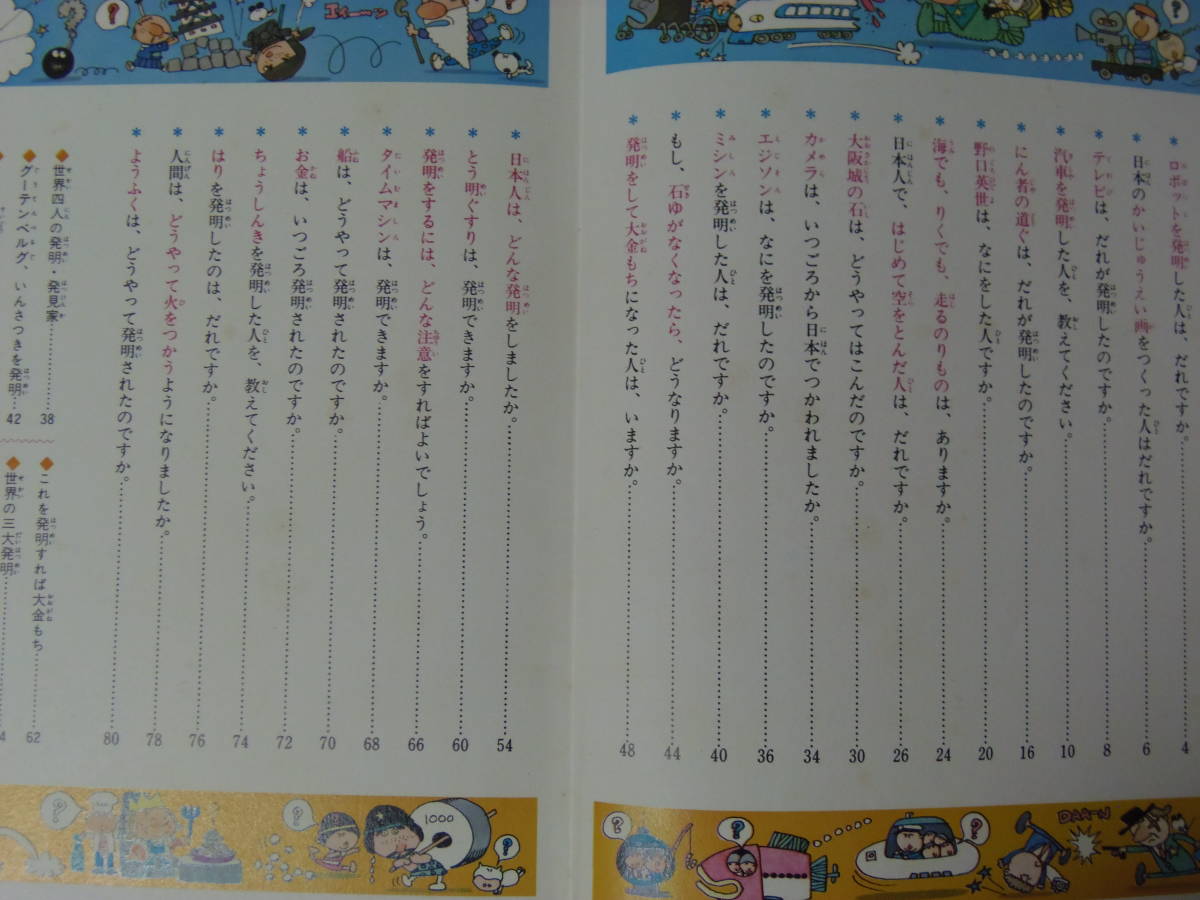 ＊ロボットを発明した人は、だれですか。……4
＊日本のかいじゅうえい画をつくった人はだれですか。……6
＊テレビは、だれが発明したのですか。……8
＊汽車を発明した人を、教えてください。……10
＊にん者の道ぐは、だれが発明したのですか。……16
＊野口英世は、なにをした人ですか。……20
＊海でも、りくでも、走るのりものは、ありますか。……24
＊日本人で、はじめて空をとんだ人は、だれですか。……26
＊大阪城の石は、どうやってはこんだのですか。……30
＊カメラは、いつごろから日本でつかわれましたか。……34
＊エジソンは、なにを発明したのですか。……36
＊ミシンを発明した人は、だれですか。……40
＊もし、石ゆがなくなったら、どうなりますか。……44
＊発明をして大金もちになった人は、いますか。……48
＊日本人は、どんな発明をしましたか。……54
＊とう明ぐすりは、発明できますか。……60
＊発明をするには、どんな注意をすればよいでしょう。……66
＊タイムマシンは、発明できますか。……68
＊船は、どうやって発明されたのですか。……70
＊お金は、いつごろ発明されたのですか。……72
＊ちょうしんきを発明した人を、教えてください。……74
＊はりを発明したのは、だれですか。……76
＊人間は、どうやって火をつかうようになりましたか。……78
＊ようふくは、どうやって発明されたのですか。……80
◆世界四人の発明・発見家……38
◆グーテンベルグ、いんさつきを発明…42
◆これを発明すれば大金もち……62
◆世界の三大発明……
エイーン
？
？
？
DAA-N
？
？
？
？
？
？
？
1000